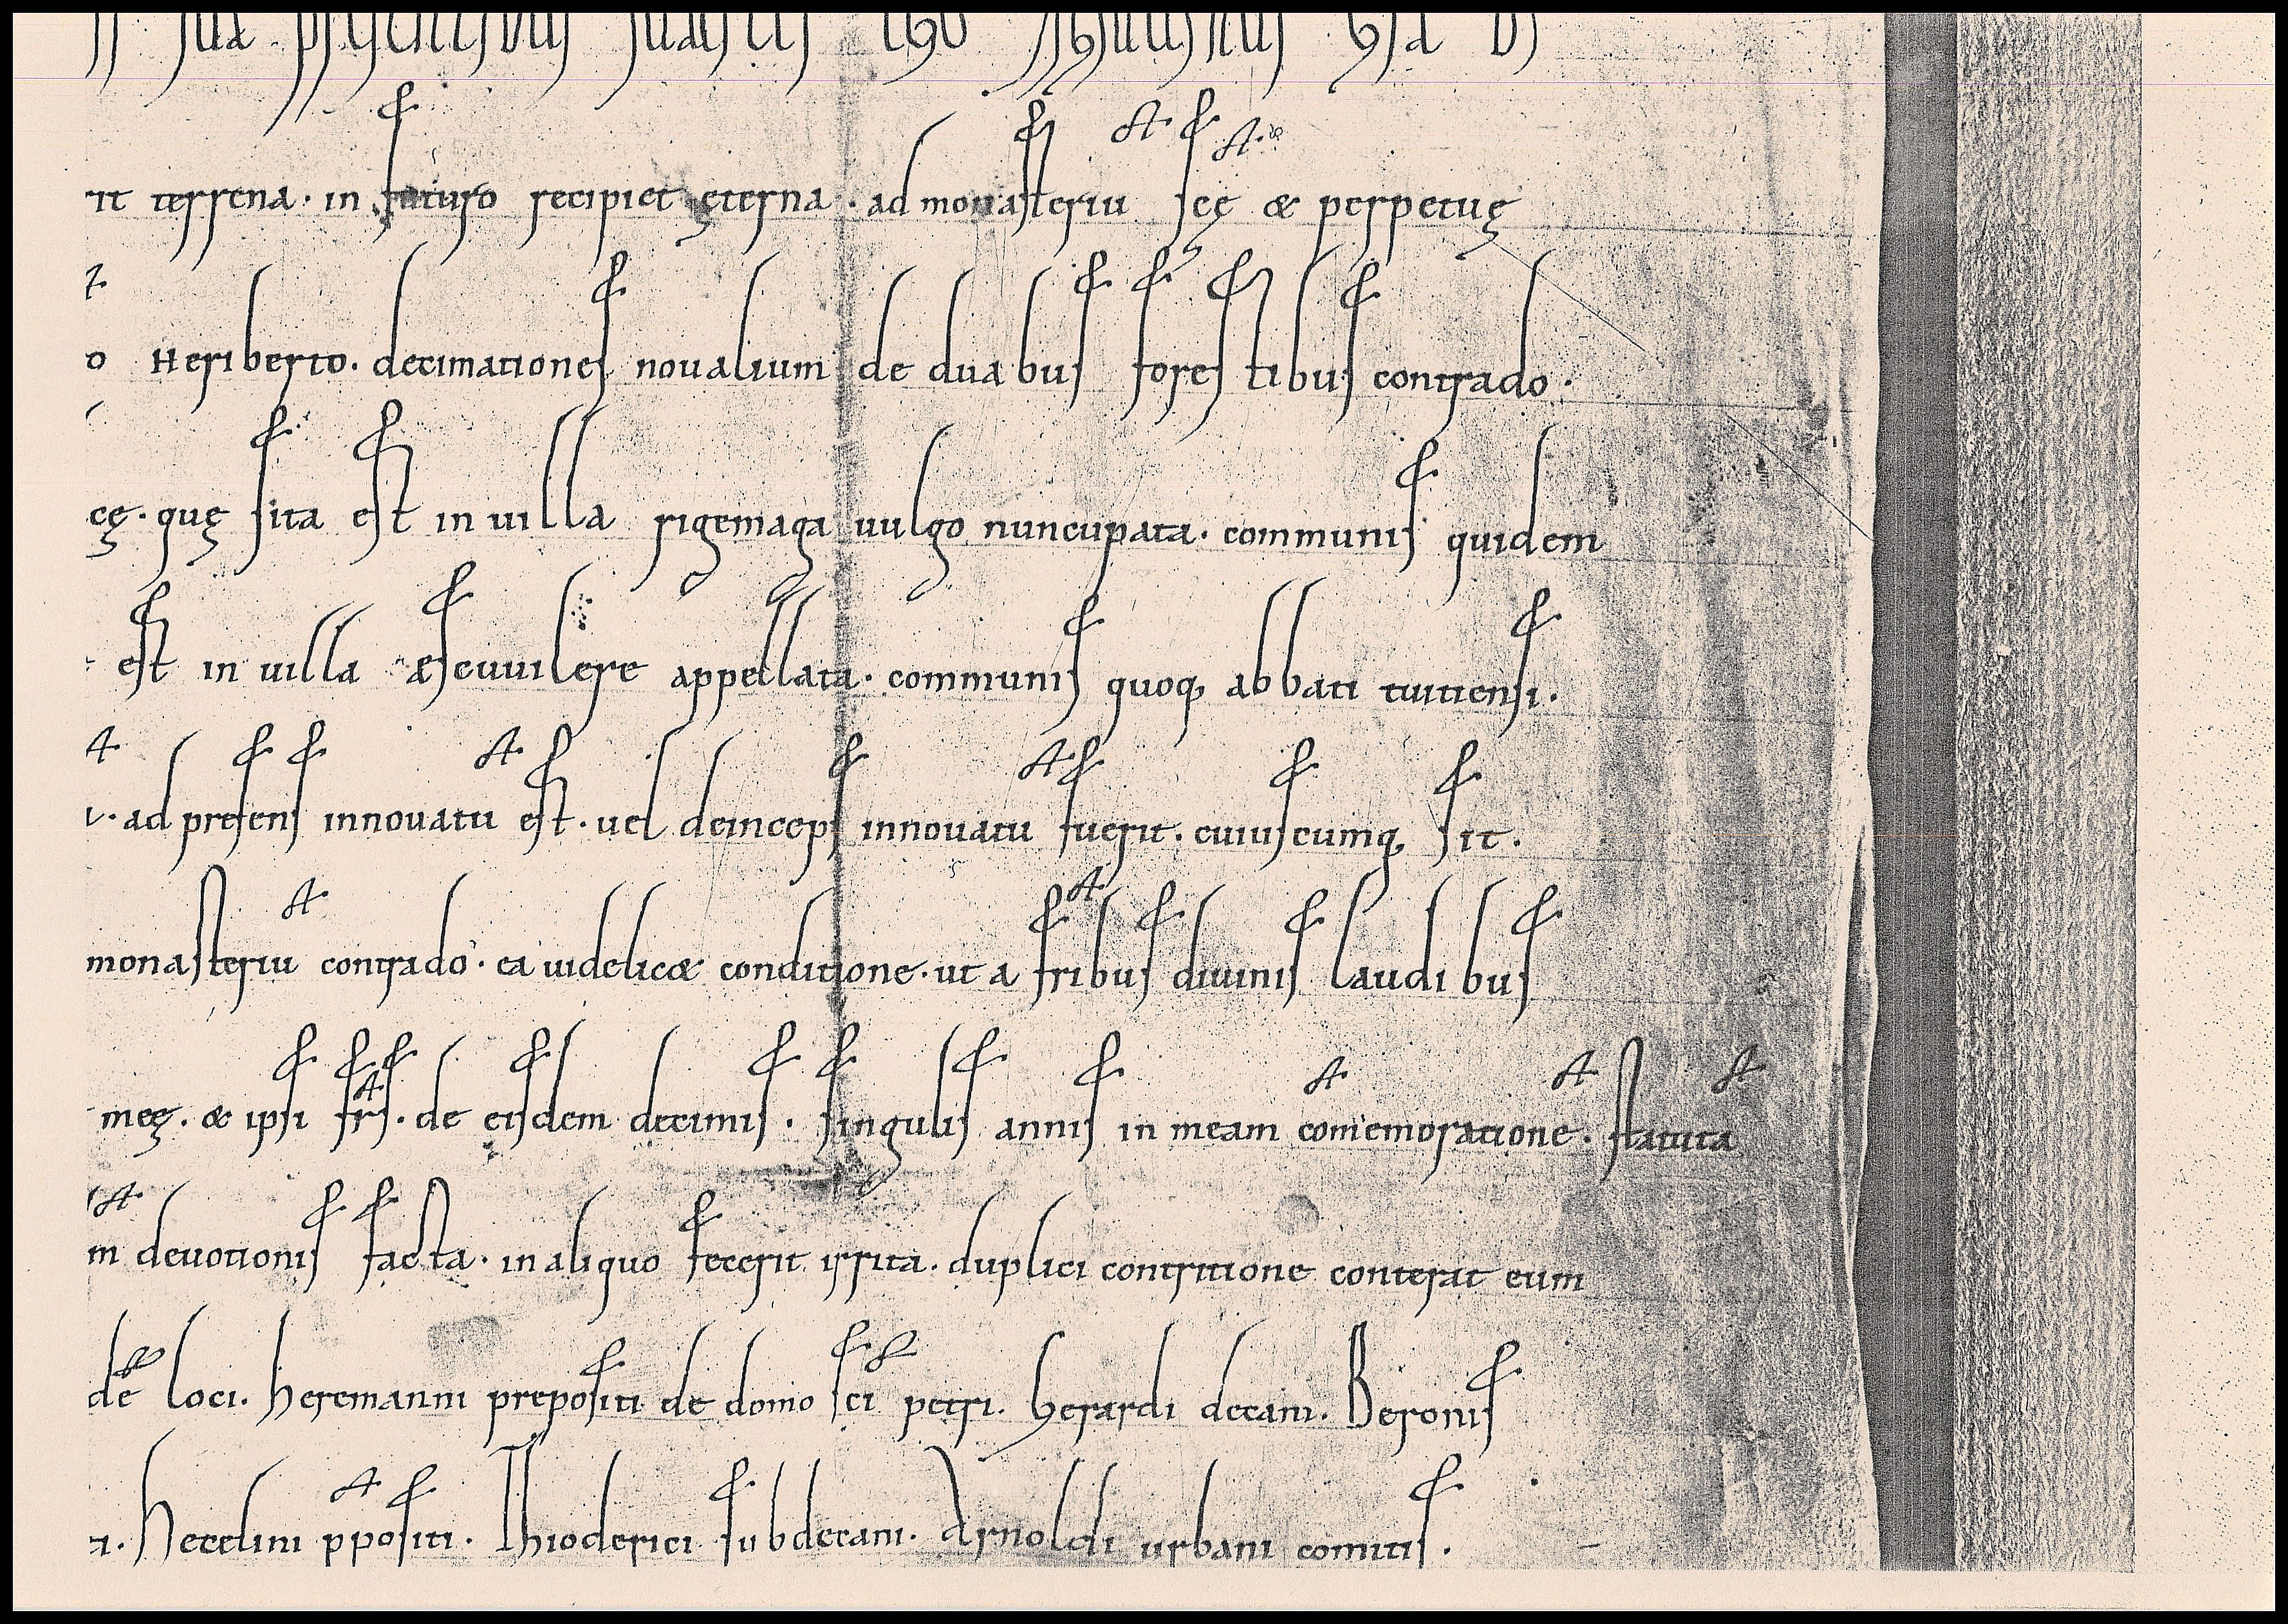 futuris ego
rit terrena. in futuro recipiet ęterna. ad monasteriu scę & perpetuę
o Heriberto. decimationes noualium de duabus forestibus contrado.
cę. quę sita est in uilla rigemaga uulgo nuncupata. communis quidem
est in uilla æscuuilere appellata. communis quoq abbati tuitiensi.
ad presens innouatu est. uel deinceps innouatu fuerit. cuiuscumq sit.
monasteriu contrado. ea uidelic& conditione. ut a fribus diuinis laudibus
meę. & ipsi frs. de eisdem decimis. singulis annis in meam comemoratione. statuta
m deuotionis facta. in aliquo fecerit irrita. duplici contritione conterat eum
de loci. heremanni prepositi de domo sci petri. Gerardi decani. Beronis
Hecelini ppositi. Thioderici subdecani. Arnoldi urbani comitis.